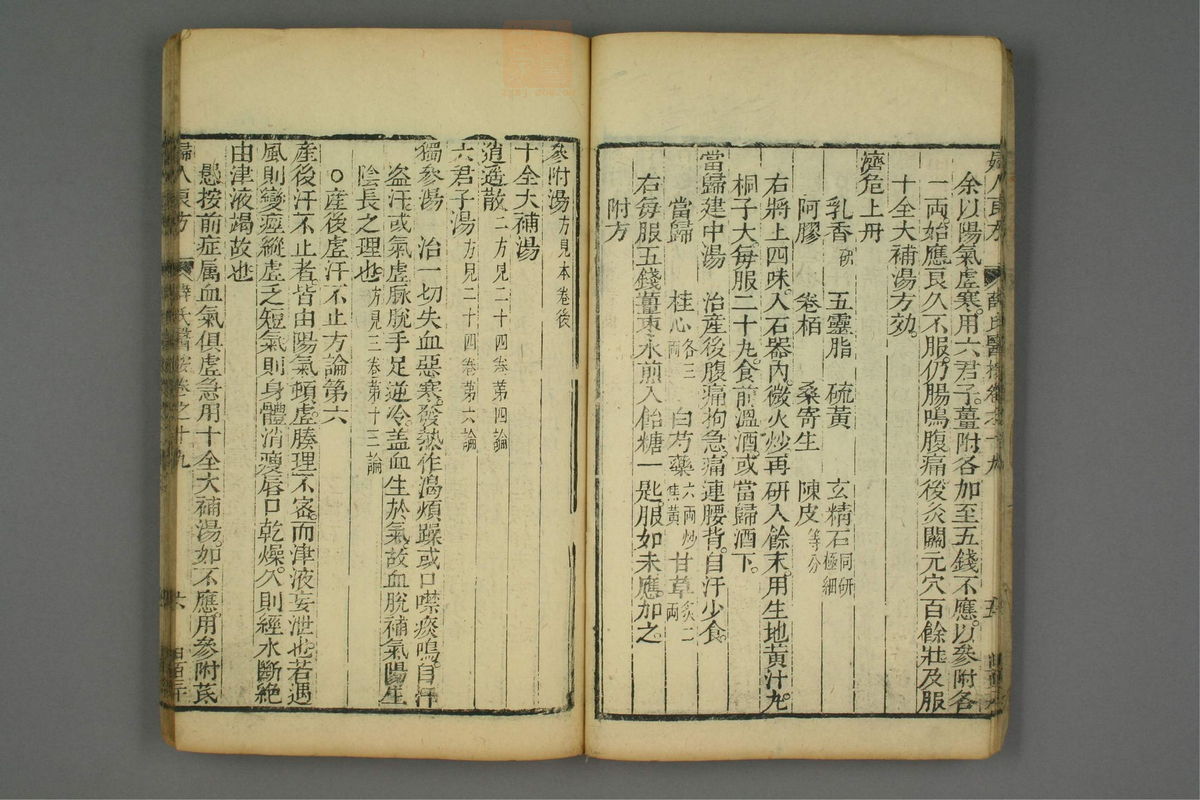 婦人良方
薛氏醫按卷之十九
五
余以陽氣虛寒。用六君子。薑附各加至五錢不應。以參附各
一兩始應。良久不服。仍腸鳴腹痛後灸關元穴百餘壯及服
十全大補湯方効。
濟危上丹
乳香研 五靈脂 硫黃 玄精石同研極細
阿膠 卷栢 桑寄生 陳皮等分
右將上四味。入石器內。微火炒。再研入餘末。用生地黃汁丸。
桐子大每服二十丸。食前溫酒。或當歸酒下。
當歸建中湯 治産後腹痛拘急。痛連腰背。自汗少食。
當歸 桂心各三兩 白芍藥六兩炒焦黃 甘草炙二兩
右每服五錢薑棗水煎入飴糖一匙。服如未應。加之。
附方
參附湯方見本卷後
十全大補湯
逍遙散二方見二十四卷第四論
六君子湯方見二十四卷第六論
獨參湯 治一切失血惡寒。發熱作渴煩躁。或口噤痰鳴。自汗
盜汗。或氣虛脉脫手足逆冷。盖血生於氣。故血脫補氣。陽生
陰長之理也方見三卷第十三論
○産後虛汗不止方論第六
産後汗不止者。皆由陽氣頓虛。腠理不密。而津液妄泄也。若遇
風則變痙。縱虛乏短氣。則身體消瘦。唇口乾燥。久則經水斷絶
由津液竭故也
愚按前症属血氣俱虛急用十全大補湯。如不應。用參附芪
婦人良方
薛氏醫按卷之十九
六